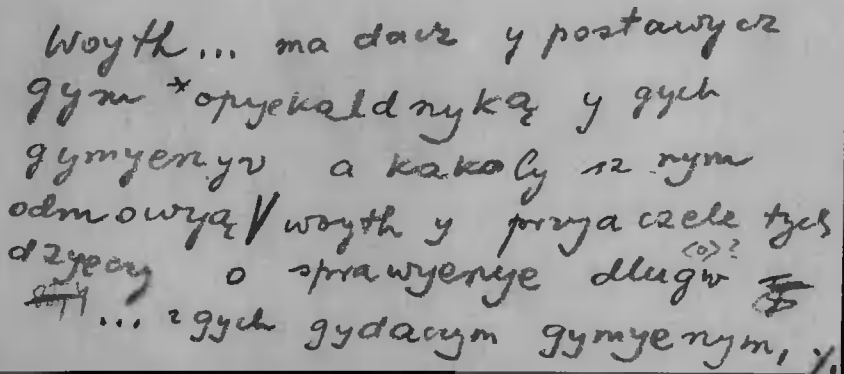 Woyth... ma dacz y postawycz
gym *opyekaldnyką y gych
gymyenyv a kakoly sz nym
odmowyą / woyth y przyaczele tych
dzyeczy o sprawyenye dlugw <o>?
... z gych gydaczym gymyenym,